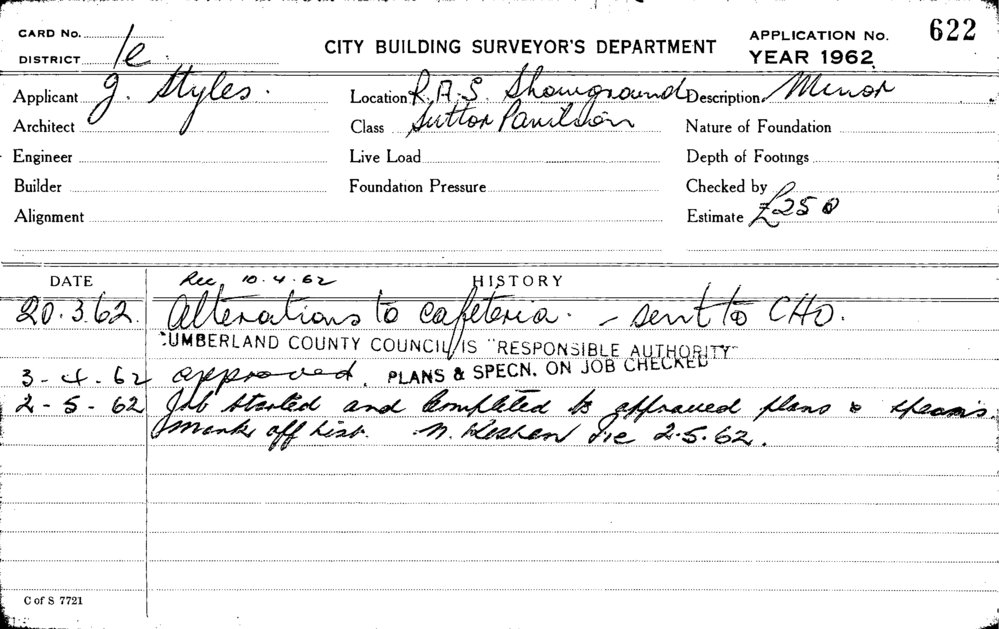 CARD No.
CITY BUILDING SURVEYOR'S DEPARTMENT
APPLICATION No. 622
DISTRICT 1e
YEAR 1962
Applicant J. Styles.
Location R.A.S. Showground
Description Minor
Architect
Class Sutton Pavilion
Nature of Foundation
Engineer
Live Load
Depth of Footings
Builder
Foundation Pressure
Checked by
Alignment
Estimate £250
DATE
Rec. 10.4.62
HISTORY
20.3.62. Alterations to cafeteria. - sent to CHO.
CUMBERLAND COUNTY COUNCIL IS "RESPONSIBLE AUTHORITY"
3-4.62 approved. PLANS & SPECN. ON JOB CHECKED
2-5-62 Job started and completed to approved plans & specns.
mark off list. N. 2.5.62.
C of S 7721